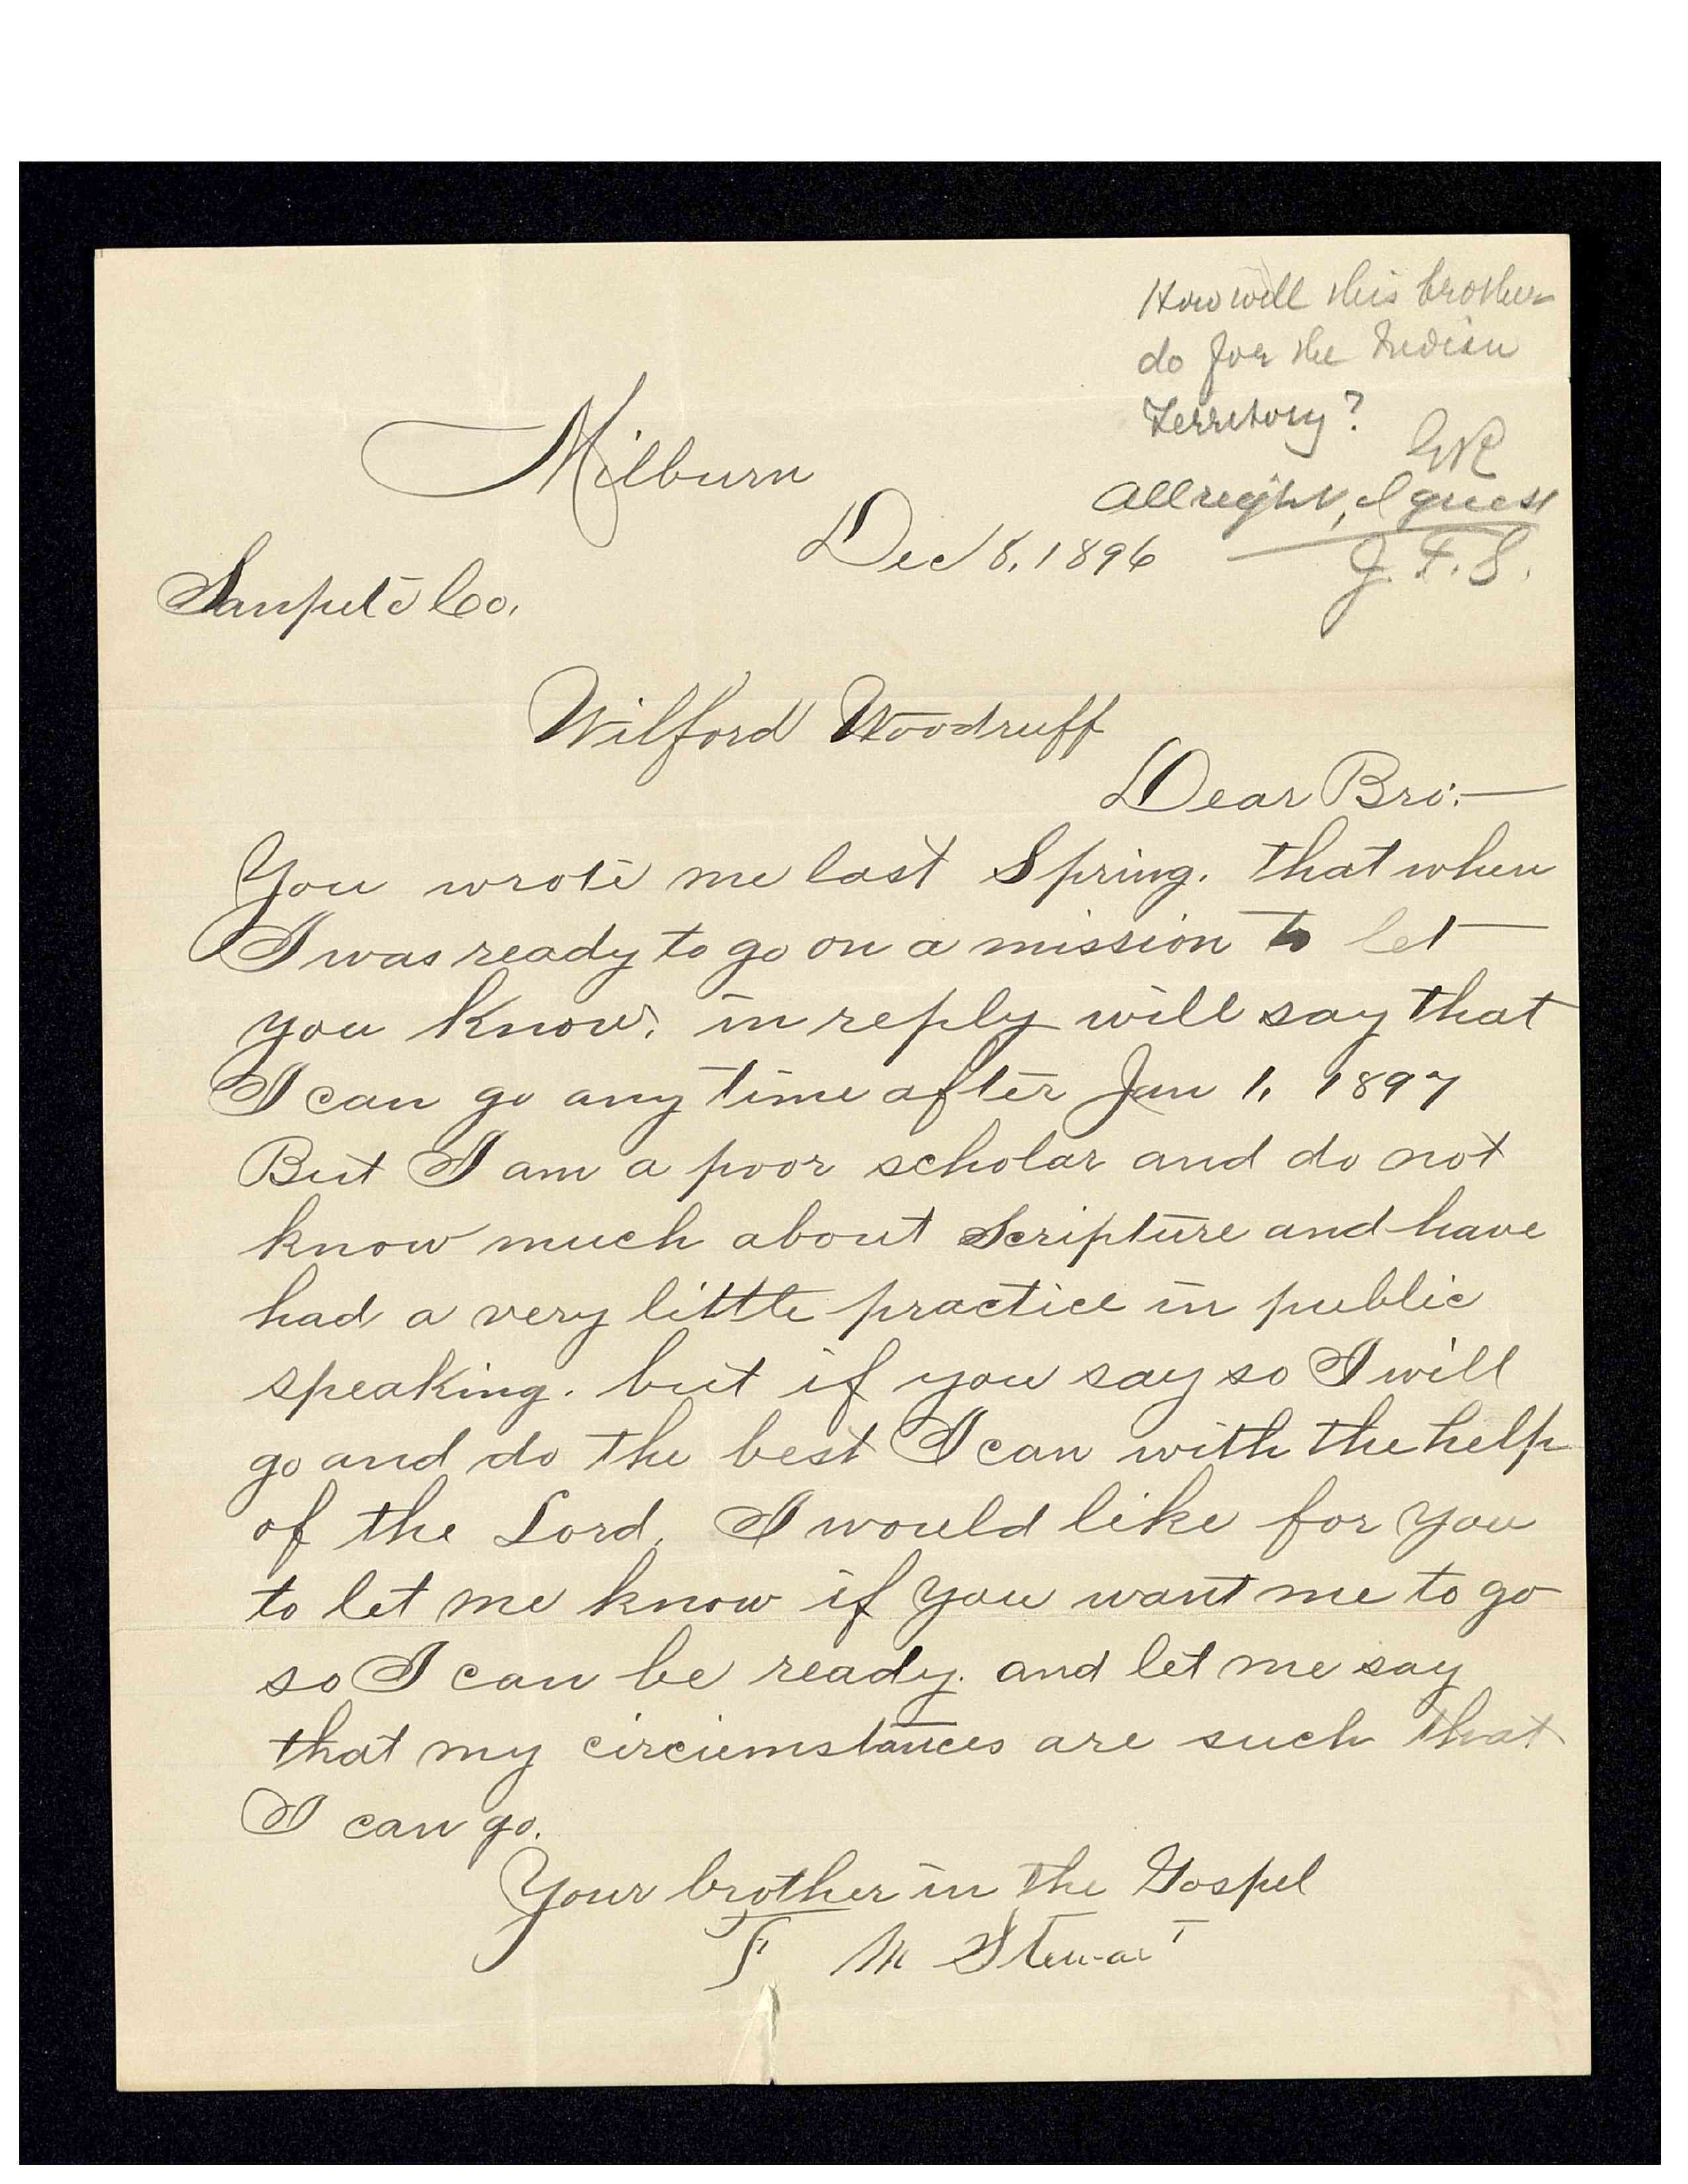 How will this brother
do for the Indian
Territory?
GR
All right, I guess
J. F. S.
Milburn
Dec 8, 1896
Sanpete Co.
Wilford Woodruff
Dear Bro:—
You wrote me last Spring. that when
I was ready to go on a mission to let
you know. in reply will say that
I can go any time after Jan 1, 1897
But I am a poor scholar and do not
know much about Scripture and have
had a very little practice in public
speaking. but if you say so I will
go and do the best I can with the help
of the Lord. I would like for you
to let me know if you want me to go
so I can be ready. and let me say
that my circumstances are such that
I can go.
Your brother in the Gospel
F M Stewart